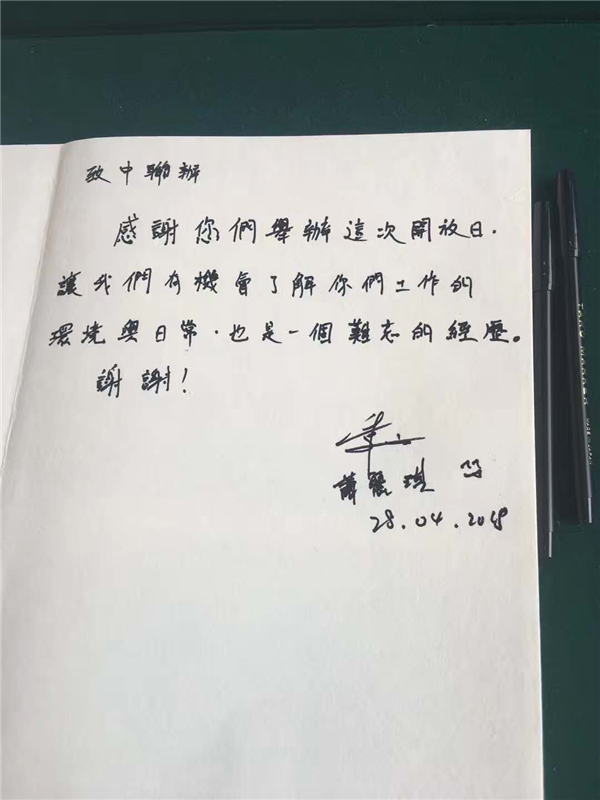 致中聯辦
感謝您們舉辦這次開放日.
讓我們有機會了解你們工作的
環境與日常,也是一個難忘的經歷。
謝謝!
28.04.2018